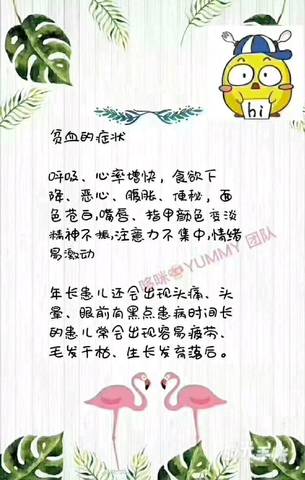 hi
贫血的症状
呼吸、心率增快，食欲下
降、恶心、腹胀、便秘，面
色苍白,嘴唇、指甲颜色变淡
精神不振,注意力不集中,情绪
易激动
哆咪@YUMMY 团队
年长患儿还会出现头痛、头
晕、眼前有黑点患病时间长
的患儿常会出现容易疲劳、
毛发干枯、生长发育落后。